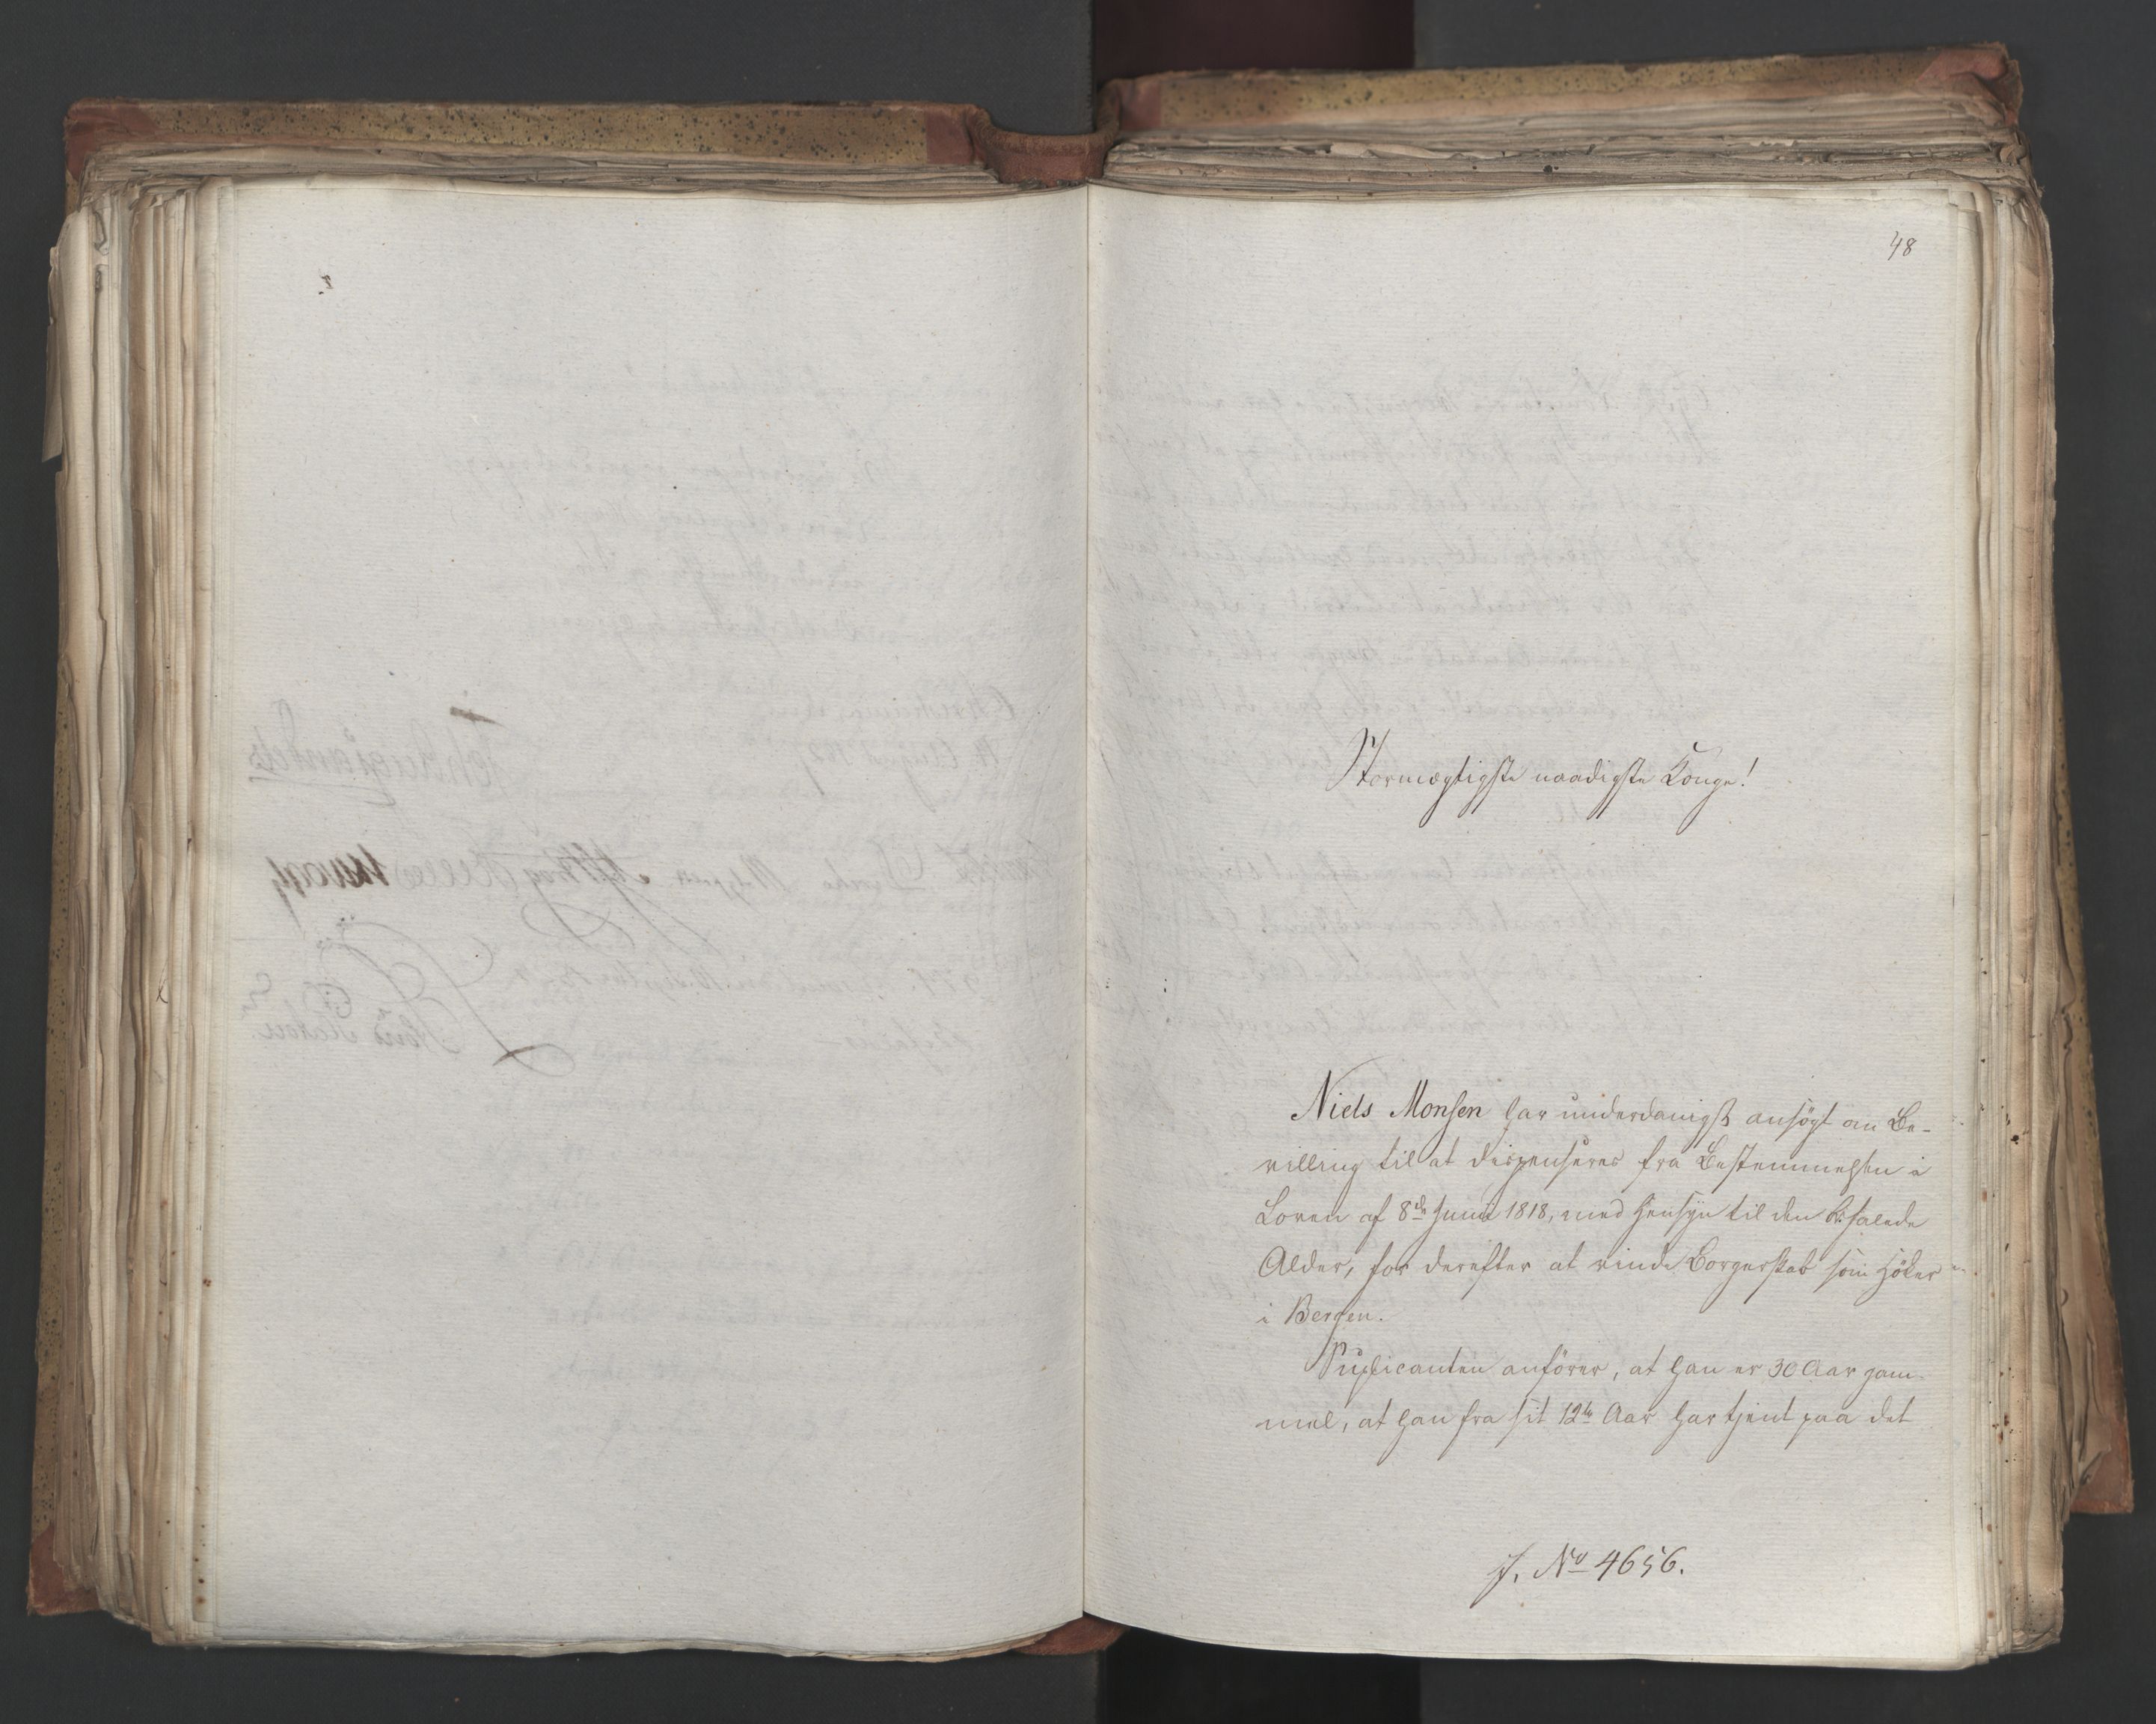 48
Stormægtigste naadigste Konge!
Niels Monsen har underdanigst ansögt om Be-
villing til at dispenseres fra Bestemmelsen i
Loven af 8de Junii 1818, med Hensyn til den befalede
Alder, for derefter at vinde Borgerskab som Höker
i Bergen.
Suplicanten anförer, at han er 30 Aar gam-
mel, at han fra sit 12te Aar har tjent paa det
J. No 4656.